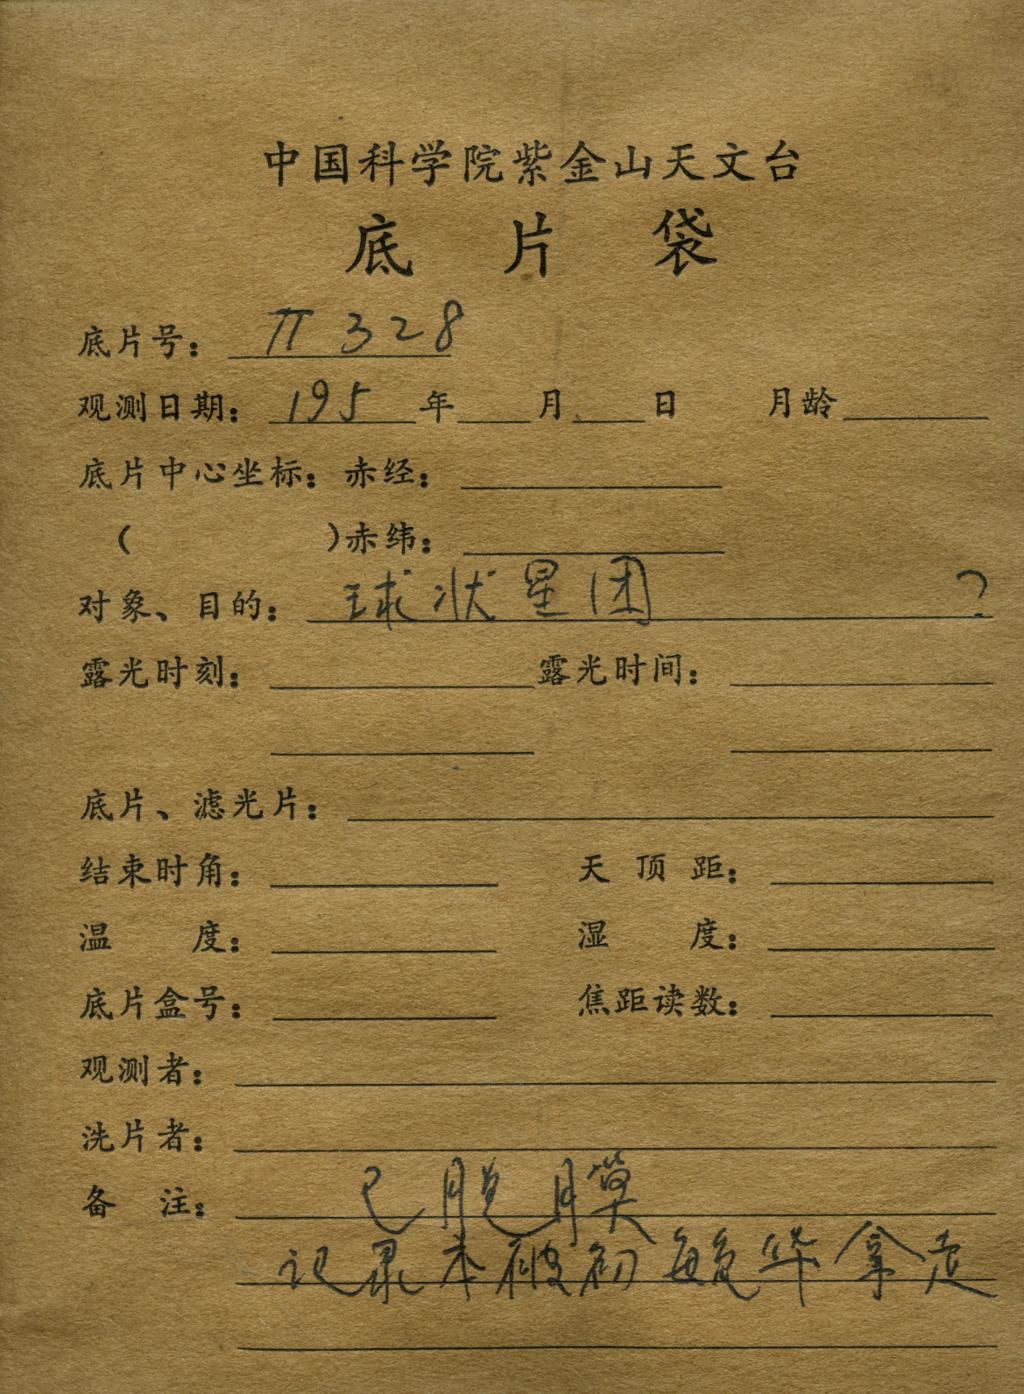 中国科学院紫金山天文台
底片袋
底片号：π 328
观测日期：195 年 月 日 月龄
底片中心坐标：赤经：
( )赤纬：
对象、目的：球状星团 ?
露光时刻： 露光时间：
底片、滤光片：
结束时角： 天顶距：
温度： 湿度：
底片盒号： 焦距读数：
观测者：
洗片者：
备注：已脱膜
记录本被初毓华拿走